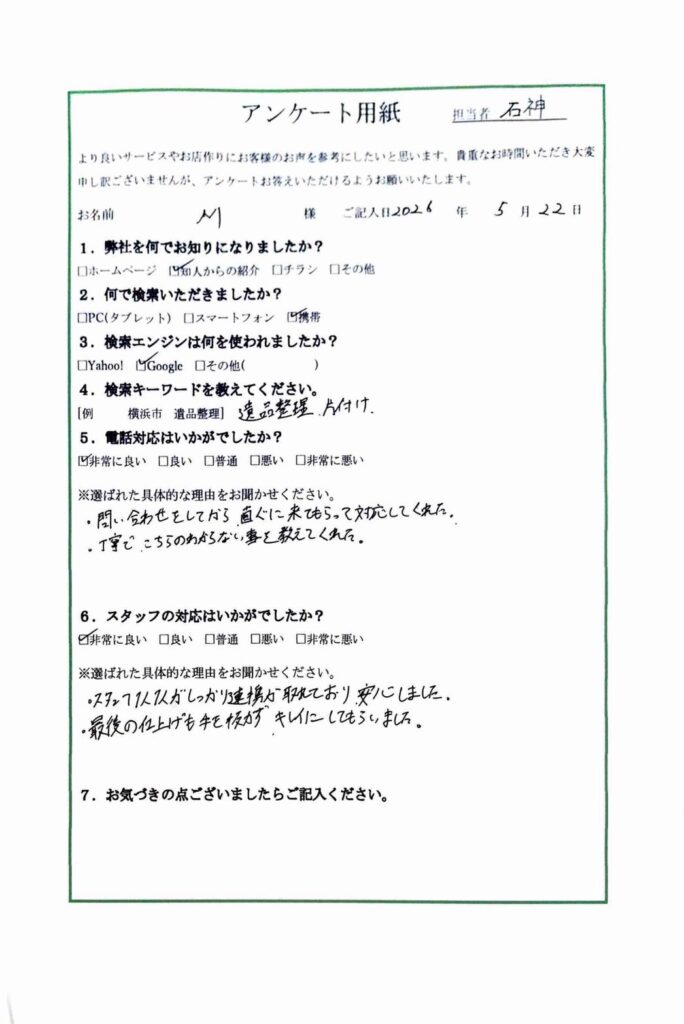 アンケート用紙
担当者 石神
より良いサービスやお店作りにお客様のお声を参考にしたいと思います。貴重なお時間いただき大変
申し訳ございませんが、アンケートお答えいただけるようお願いいたします。
お名前 様 ご記入日2026 年 5 月 22 日
1．弊社を何でお知りになりましたか？
□ホームページ ☑知人からの紹介 □チラシ □その他
2．何で検索いただきましたか？
□PC(タブレット) □スマートフォン ☑携帯
3．検索エンジンは何を使われましたか？
□Yahoo! ☑Google □その他( )
4．検索キーワードを教えてください。
[例 横浜市 遺品整理] 遺品整理 片付け
5．電話対応はいかがでしたか？
☑非常に良い □良い □普通 □悪い □非常に悪い
※選ばれた具体的な理由をお聞かせください。
・問い合わせをしてから 直ぐに来てもらって対応してくれた。
・丁寧で こちらのわからない事を教えてくれた。
6．スタッフの対応はいかがでしたか？
☑非常に良い □良い □普通 □悪い □非常に悪い
※選ばれた具体的な理由をお聞かせください。
・スタッフ1人1人がしっかり連携が取れており 安心しました。
・最後の仕上げも手を抜かず キレイにしてもらいました。
7．お気づきの点ございましたらご記入ください。